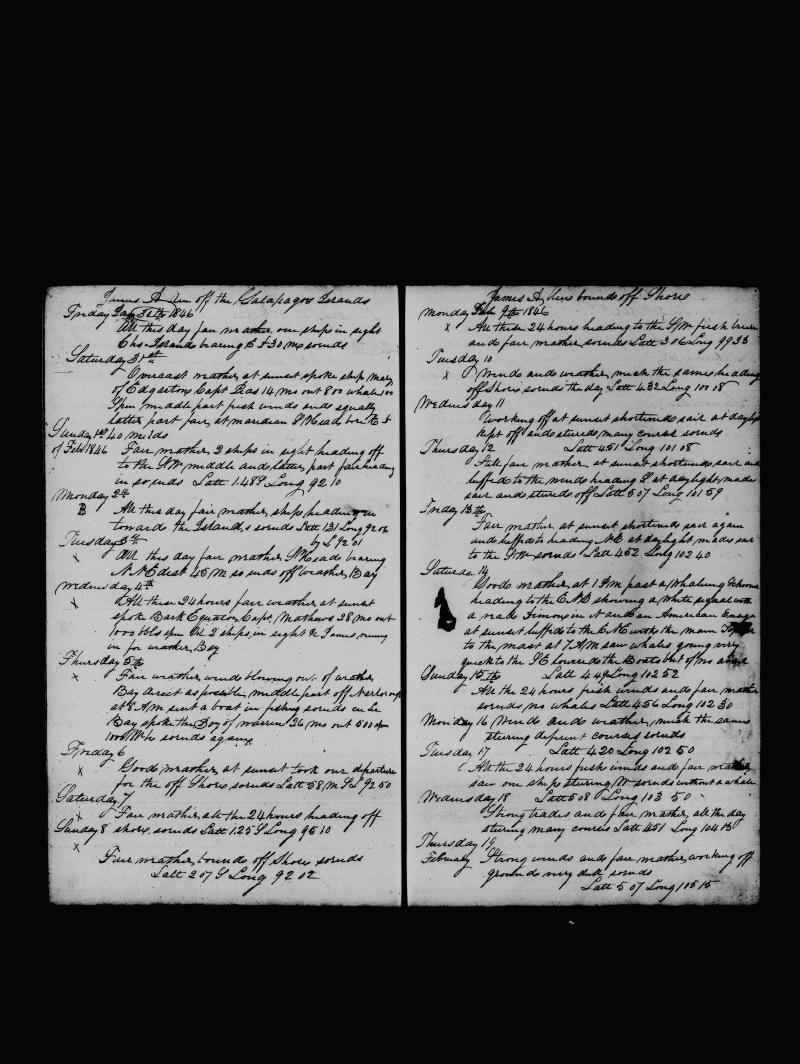 James A Ann off the Galapagos Islands
Friday Jan 30th 1846
All this day fair weather one ship in sight
Chs Island bearing E S 30 m so ends
Saturday 31st
Overcast weather, at sunset spoke ship Mary
of Edgarton Capt Peas 14 mos out 800 whale 100
Spm middle part fresh winds and squally
latter part fair, at meridian S Head bore E S
40 m so ends
Sunday 1st
of Feb 1846 Fair weather 2 ships in sight heading off
to the SW middle and latter part fair heading
in so ends Latt 1.48 S Long 92 10
Monday 2d
B All this day fair weather, ships heading in
towards the Islands so ends Latt 1 31 Long 92 02
by L 92 01
Tuesday 3d
x All this day fair weather S Head bearing
NNE dist 45 M so ends off weather Bay
Wednesday 4th
x All these 24 hours fair weather at sunset
spoke Bark Equator Capt Mathews 28 mo out
1000 bbls spm Oil 2 ships in sight & James, runing
in for weather Bay
Thursday 5th
x Fair weather winds blowing out of weather
Bay direct as posible, middle part off
at 8 A.M sent a boat in fishing so ends in Le
Bay spoke the Boy of Warren 36 mo out 500 spm
1000 Wh so ends again
Friday 6
x Good weather at sunset took our departure
for the off Shore so ends Latt 58 m S L 92 50
Saturday 7
x Fair weather, all the 24 hours heading off
shore so ends Latt 1.25 S Long 95 10
Sunday 8
x Fair weather, bound off Shore so ends
Latt 2 07 S Long 92 02
James A Ann bound off Shore
Monday Feb 9th 1846
x All these 24 hours heading to the SW fresh breeze
and fair weather so ends Latt 3 06 Long 99 33
Tuesday 10
x Winds and weather, much the same heading
off shore so ends the day Latt 4 32 Long 100 18
Wednesday 11
Working off at sunset shortened sail at daylight
kept off and stered many courses so ends
Latt 4 51 Long 101 08
Thursday 12
Still fair weather at sunset shortened sail and
luffed to the wind heading S at daylight, made
sail and stered off Latt 5 07 Long 101 59
Friday 13th
Fair weather, at sunset shortened sail again
and luffed to heading NE at daylight, made sail
to the SW so ends Latt 4 52 Long 102 40
Saturda 14
Good weather at 1 P.M past a Whaling Schooner
heading to the ENE showing a White signal with
a read in it and an American Ensign
at sunset luffed to the ENE with the main
to the mast at 7 AM saw whales going very
quick to the SE lowered the Boats but of no avail
Latt 4 49 Long 102 52
Sunday 15th
All the 24 hours fresh winds and fair weather
so ends no whales Latt 4 56 Long 102 30
Monday 16 Winds and weather, much the same
stering diferent courses so ends
Latt 4 20 Long 102 50
Tuesday 17
All the 24 hours fresh winds and fair weather
saw one ship stering W so ends without a whale
Latt 5 08 Long 103 50
Wednesday 18
Strong trades and fair weather, all the day
stering many courses Latt 4 51 Long 104 13
Thursday 19
February Strong winds and fair weather, working off
grounds very dull so ends
Latt 5 07 Long 105 15